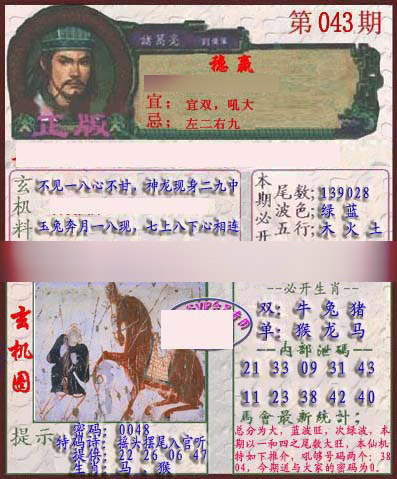 第043期
諸葛亮
稳赢
宜：宜双，吼大
忌：左二右九
正版
玄机料
不见一八心不甘，神龙现身二九中
玉兔奔月一八现，七上八下心相连
本期必开
尾数：139028
波色：绿 蓝
五行：木 火 土
玄机图
必开生肖
双：牛 兔 猪
单：猴 龙 马
--内部泄码--
21 33 09 31 43
11 23 38 42 40
馬會最新統計：
总分为大，蓝波旺，次绿波，本
期以一和四之尾数大旺，本仙机
特如下推介，吼够号码两个：38
04，今期送与大家的密码为0.
提示
密码：0048
特码诗：摇头摆尾入官听
提供：22 26 06 47
生肖：马、猴